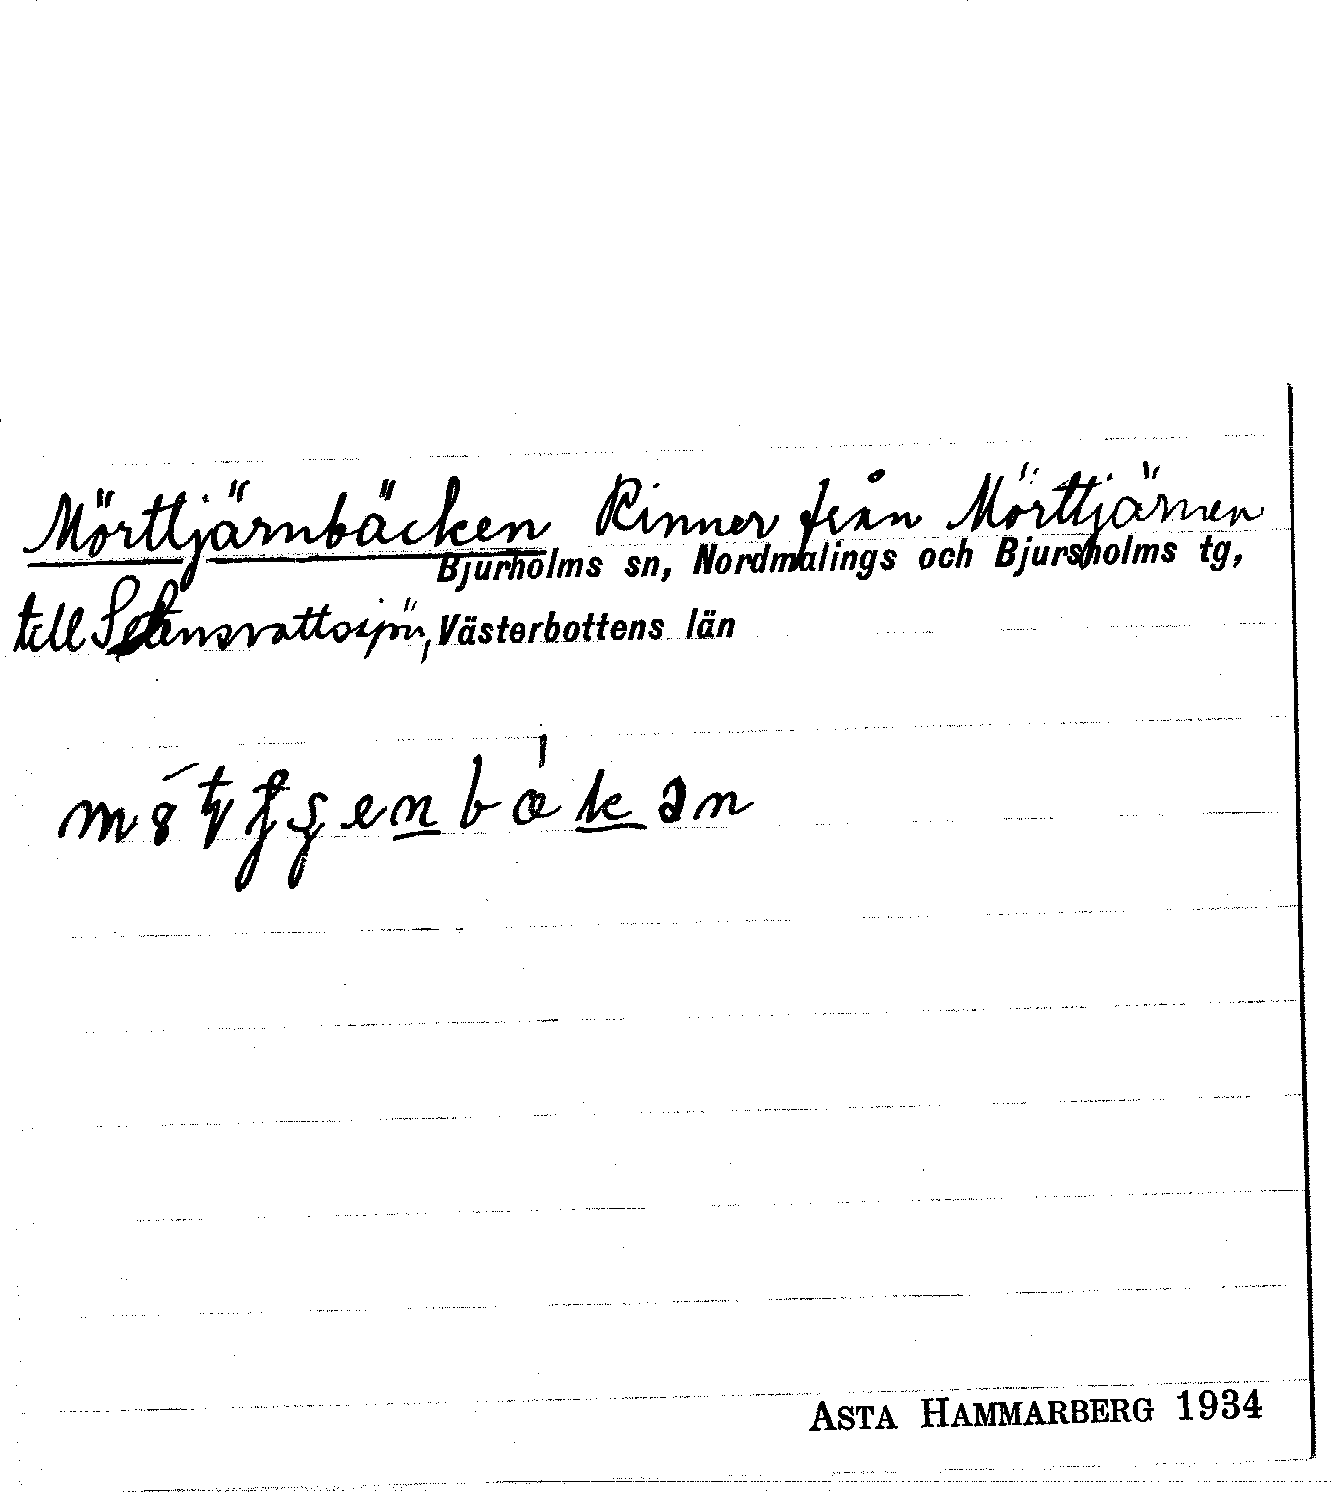 Mörttjärnbäcken Rinner från Mörttjärnen
Bjurholms sn, Nordmalings och Bjursholms tg,
till
Västerbottens län
ASTA HAMMARBERG 1934